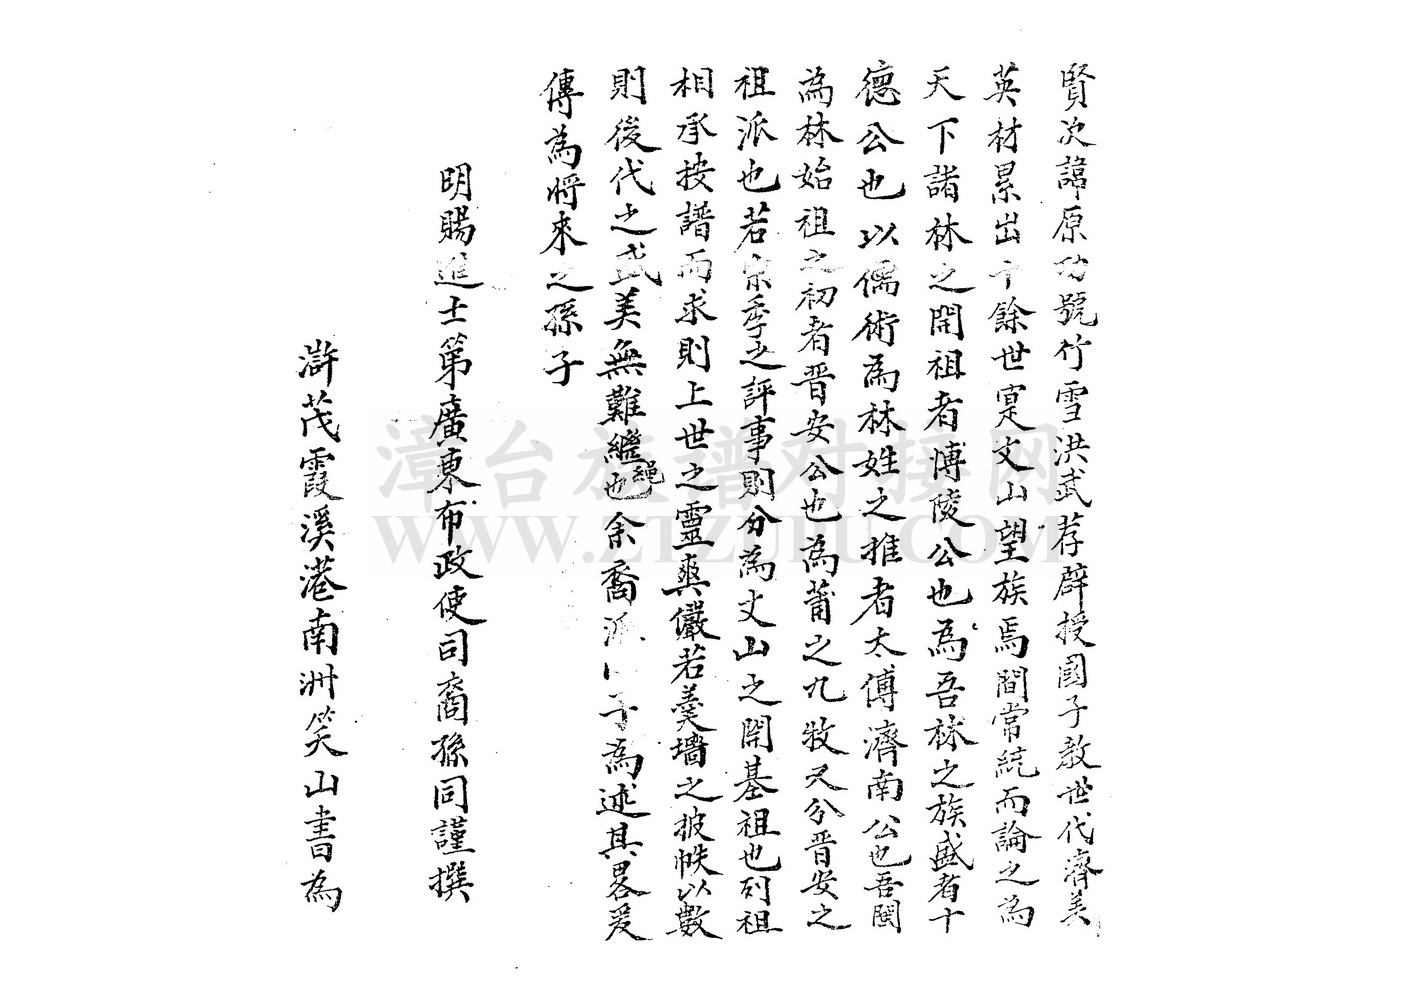 賢次諱原功號竹雪洪武荐辟授國子教世代濟美
英材累出十餘世寔文山望族焉間常統而論之為
天下諸林之開祖者博陵公也為吾林之族盛者十
德公也以儒術為林姓之推者太傅濟南公也吾閩
為林始祖之初者晋安公也為莆之九牧又分晋安之
祖派也若宗季之評事則分為文山之開基祖也列祖
相承按譜而求則上世之靈爽儼若羹墻之披帙以數
則後代之武美無難繼繩也余裔派子為述其畧爰
傳為將來之孫子
明賜進士第廣東布政使司裔孫同謹撰
滸茂霞溪港南洲笑山書為
漳台族谱对接网
WWW.ZTZUPU.COM